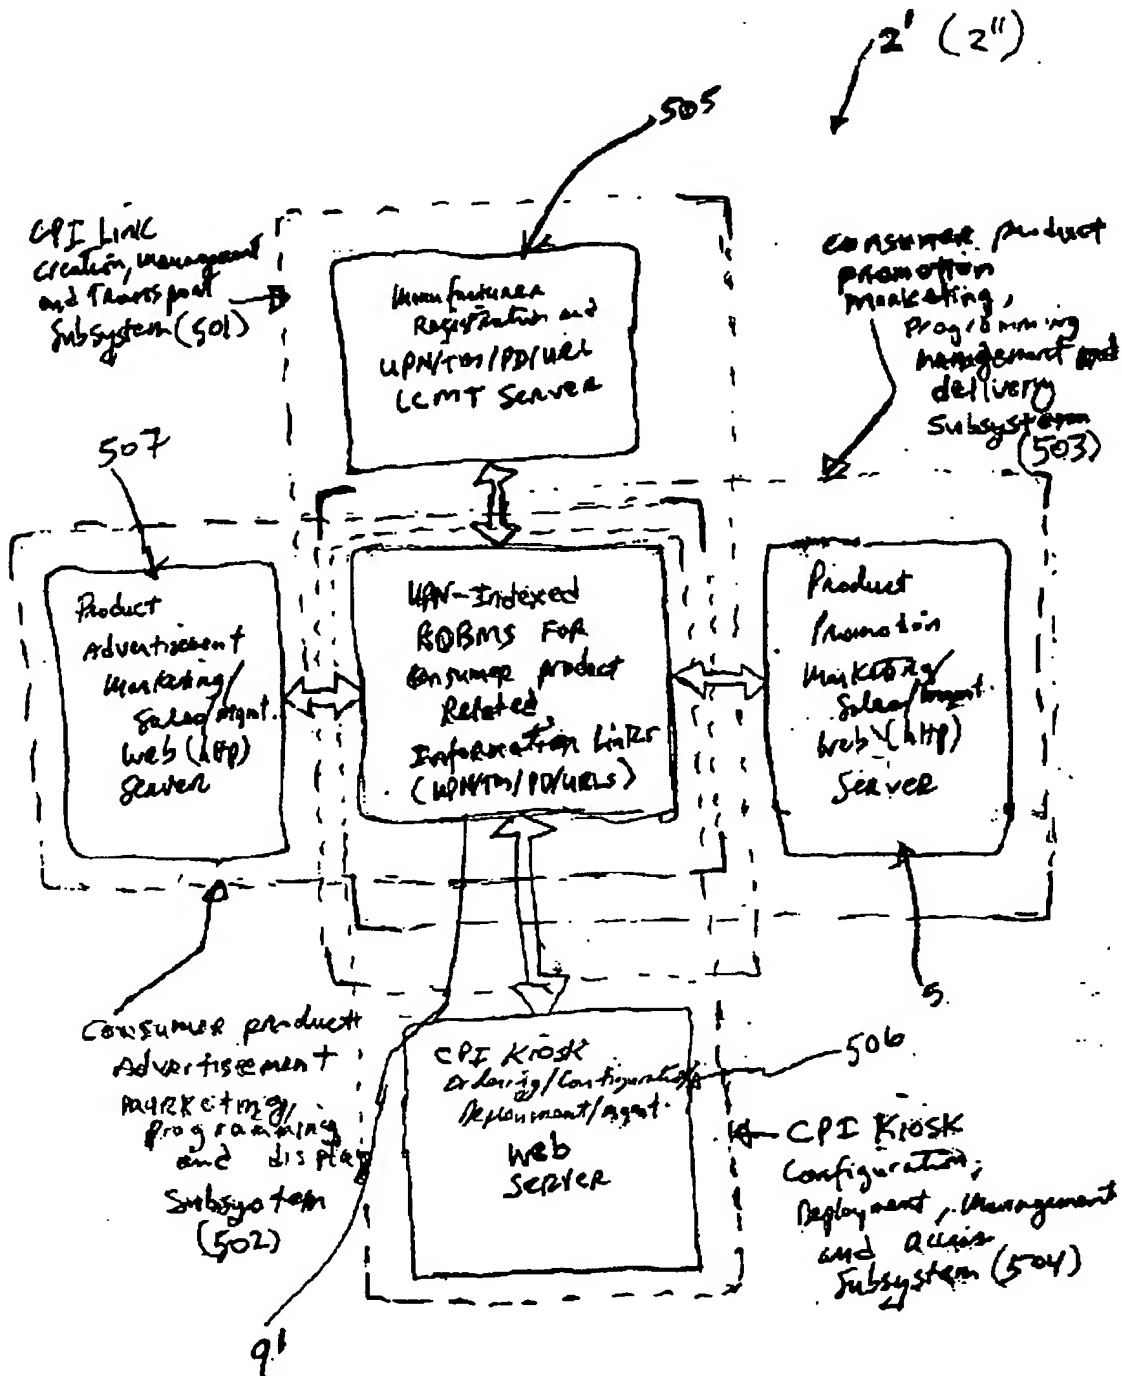 2' (2")
505
CPI Link
Creation, Management
and Transport
Subsystem (501)
Manufacturer
Registration and
UPN/TM/PD/URL
LCMT Server
Consumer product
promotion
marketing,
programming
management and
delivery
Subsystem
(503)
507
Product
Advertisement
Marketing/
Sales/Mgmt.
Web (http)
Server
UPN-Indexed
RDBMS FOR
Consumer product
Related
Information Links
(UPN/TM/PD/URLs)
Product
Promotion
Marketing/
Sales/Mgmt.
Web (http)
Server
5
Consumer product
Advertisement
marketing,
programming
and display
Subsystem
(502)
CPI Kiosk
Ordering/Configuration
Deployment/Mgmt.
Web
Server
506
CPI Kiosk
Configuration,
Deployment, Management
and Access
Subsystem (504)
9'